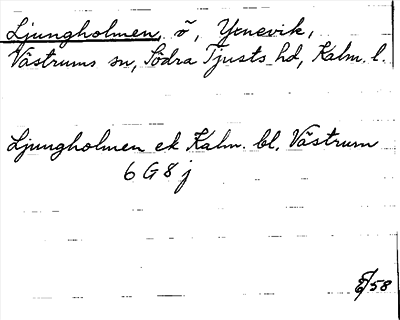 Ljungholmen, ö, Yxnevik,
Västrums sn, Södra Tjusts hd, Kalm. l.
Ljungholmen ek Kalm. bl. Västrum
6 G 8 j
6/58